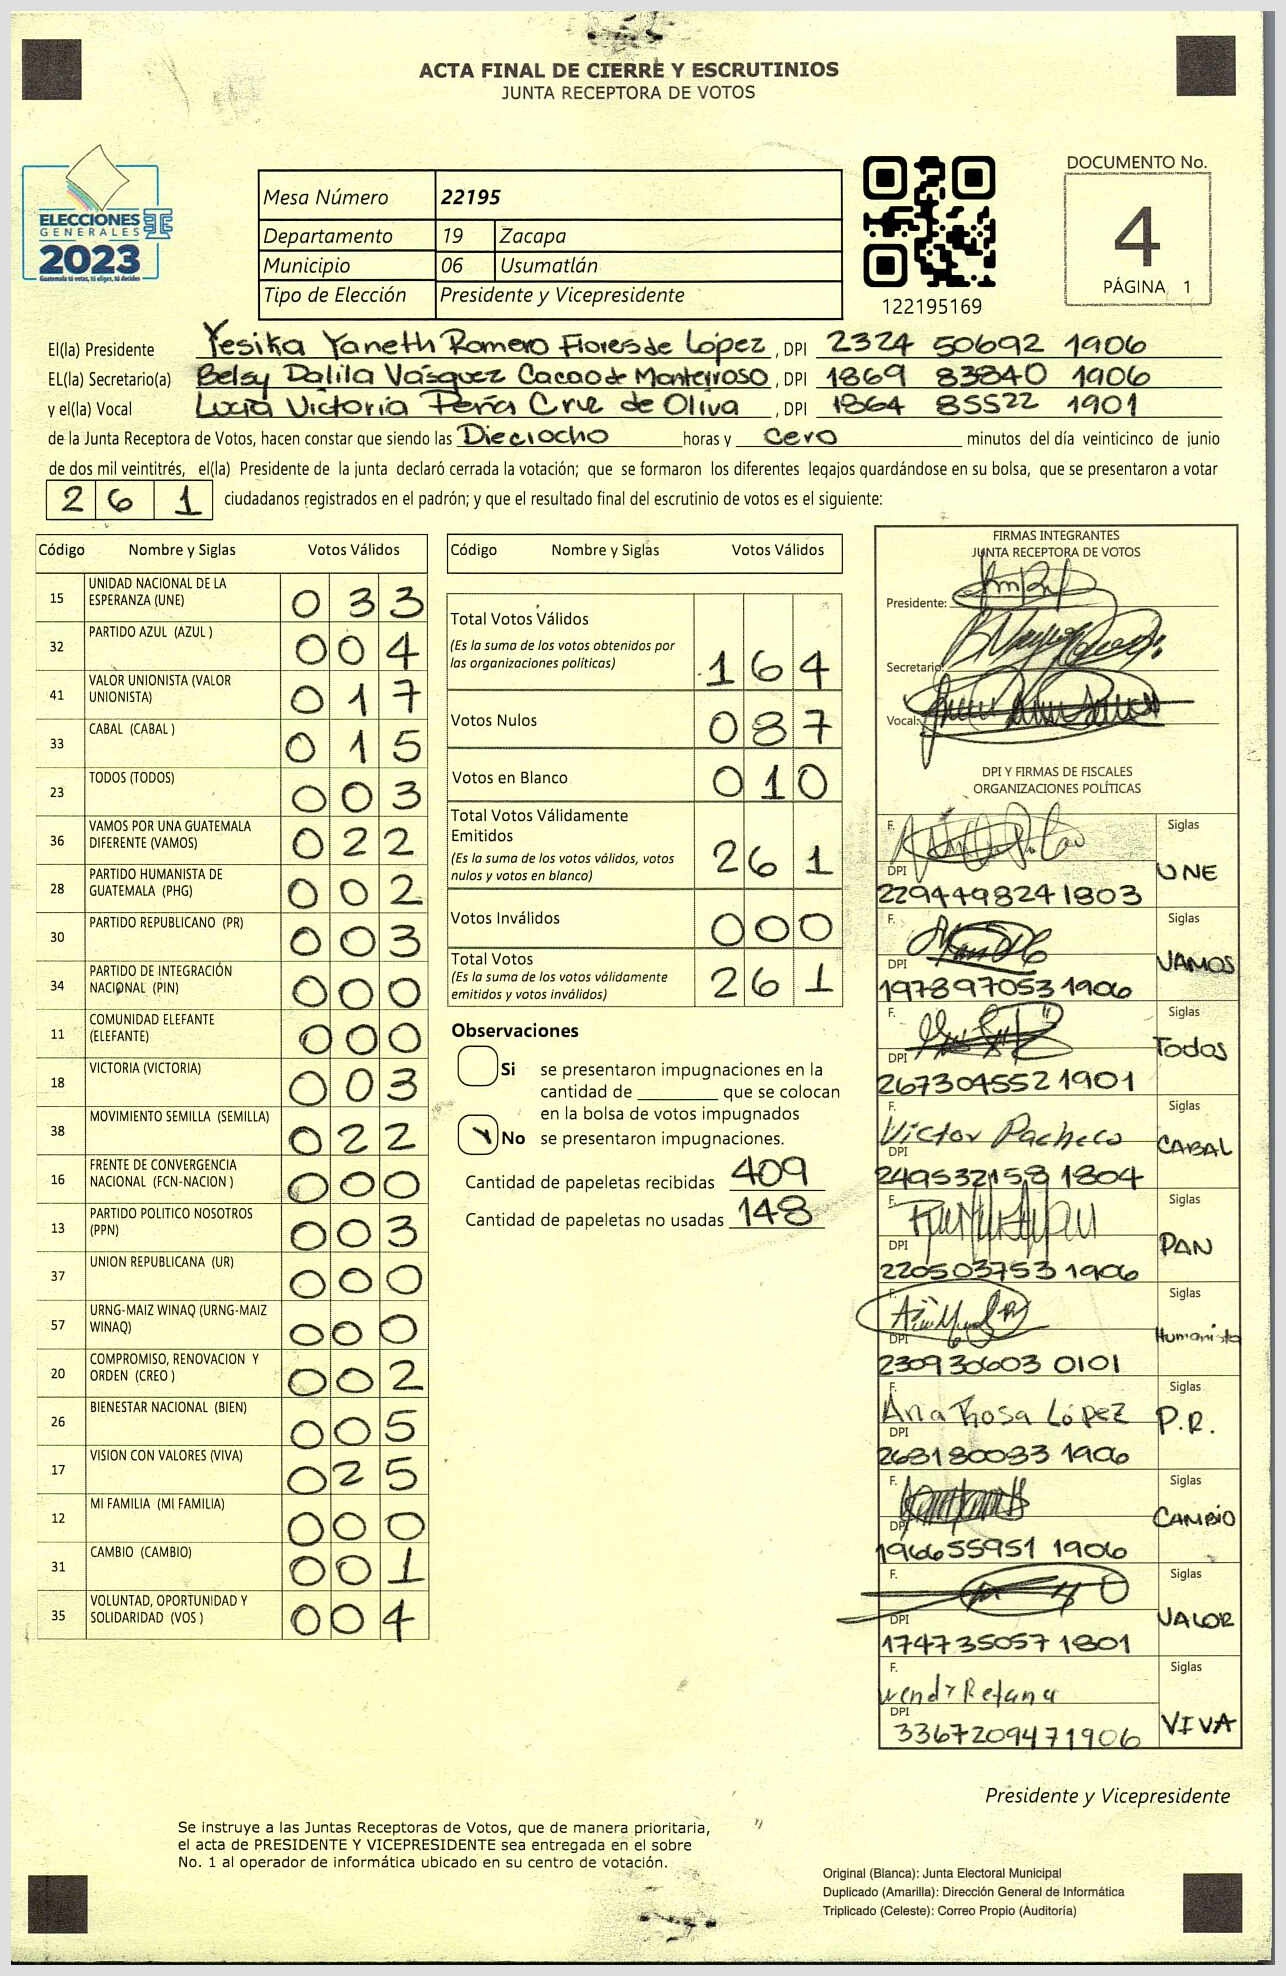 ACTA FINAL DE CIERRE Y ESCRUTINIOS
JUNTA RECEPTORA DE VOTOS
ELECCIONES
GENERALES
2023
Guatemala tú votas, tú eliges, tú decides
Mesa Número 22195
Departamento 19 Zacapa
Municipio 06 Usumatlán
Tipo de Elección Presidente y Vicepresidente
122195169
DOCUMENTO No.
4
PÁGINA 1
El(la) Presidente Yesika Yaneth Romero Flores de López, DPI 2324 50692 1906
EL(la) Secretario(a) Belsy Dalila Vásquez Cacao de Monterroso, DPI 1869 83840 1906
y el(la) Vocal Lucia Victoria Peña Cruz de Oliva, DPI 1864 85522 1901
de la Junta Receptora de Votos, hacen constar que siendo las Dieciocho horas y Cero minutos del día veinticinco de junio
de dos mil veintitrés, el(la) Presidente de la junta declaró cerrada la votación; que se formaron los diferentes legajos guardándose en su bolsa, que se presentaron a votar
261 ciudadanos registrados en el padrón; y que el resultado final del escrutinio de votos es el siguiente:
Código Nombre y Siglas Votos Válidos
15 UNIDAD NACIONAL DE LA ESPERANZA (UNE) 033
32 PARTIDO AZUL (AZUL ) 004
41 VALOR UNIONISTA (VALOR UNIONISTA) 017
33 CABAL (CABAL ) 015
23 TODOS (TODOS) 003
36 VAMOS POR UNA GUATEMALA DIFERENTE (VAMOS) 022
28 PARTIDO HUMANISTA DE GUATEMALA (PHG) 002
30 PARTIDO REPUBLICANO (PR) 003
34 PARTIDO DE INTEGRACIÓN NACIONAL (PIN) 000
11 COMUNIDAD ELEFANTE (ELEFANTE) 000
18 VICTORIA (VICTORIA) 003
38 MOVIMIENTO SEMILLA (SEMILLA) 022
16 FRENTE DE CONVERGENCIA NACIONAL (FCN-NACION ) 000
13 PARTIDO POLITICO NOSOTROS (PPN) 003
37 UNION REPUBLICANA (UR) 000
57 URNG-MAIZ WINAQ (URNG-MAIZ WINAQ) 000
20 COMPROMISO, RENOVACION Y ORDEN (CREO ) 002
26 BIENESTAR NACIONAL (BIEN) 005
17 VISION CON VALORES (VIVA) 025
12 MI FAMILIA (MI FAMILIA) 000
31 CAMBIO (CAMBIO) 001
35 VOLUNTAD, OPORTUNIDAD Y SOLIDARIDAD (VOS ) 004
Código Nombre y Siglas Votos Válidos
Total Votos Válidos
(Es la suma de los votos obtenidos por las organizaciones políticas) 164
Votos Nulos 087
Votos en Blanco 010
Total Votos Válidamente Emitidos
(Es la suma de los votos válidos, votos nulos y votos en blanco) 261
Votos Inválidos 000
Total Votos
(Es la suma de los votos válidamente emitidos y votos inválidos) 261
Observaciones
Si se presentaron impugnaciones en la
cantidad de ________ que se colocan
en la bolsa de votos impugnados
No se presentaron impugnaciones.
Cantidad de papeletas recibidas 409
Cantidad de papeletas no usadas 148
FIRMAS INTEGRANTES
JUNTA RECEPTORA DE VOTOS
Presidente:
Secretario:
Vocal:
DPI Y FIRMAS DE FISCALES
ORGANIZACIONES POLÍTICAS
F. Siglas
DPI UNE
2294498241803
F. Siglas
DPI VAMOS
1978970531906
F. Siglas
DPI Todos
2673045521901
F. Siglas
Victor Pacheco
DPI CABAL
2495321581804
F. Siglas
DPI PAN
2205037531906
F. Siglas
DPI Humanista
230930603 0101
F. Siglas
Ana Rosa López P.R.
DPI
263180033 1906
F. Siglas
DPI CAMBIO
196655951 1906
F. Siglas
DPI VALOR
1747350571801
F. Siglas
Wendy Retana
DPI VIVA
3367209471906
Presidente y Vicepresidente
Se instruye a las Juntas Receptoras de Votos, que de manera prioritaria,
el acta de PRESIDENTE Y VICEPRESIDENTE sea entregada en el sobre
No. 1 al operador de informática ubicado en su centro de votación.
Original (Blanca): Junta Electoral Municipal
Duplicado (Amarilla): Dirección General de Informática
Triplicado (Celeste): Correo Propio (Auditoría)